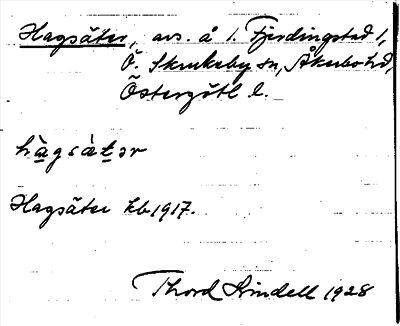 Hagsäter, avs. å 1. Fjerdingstad 1,
Ö. Skrukeby sn, Åkerbo hd,
Östergötl l.
hàgsàtər
Hagsäter kb 1917.
Thord Lindell 1928